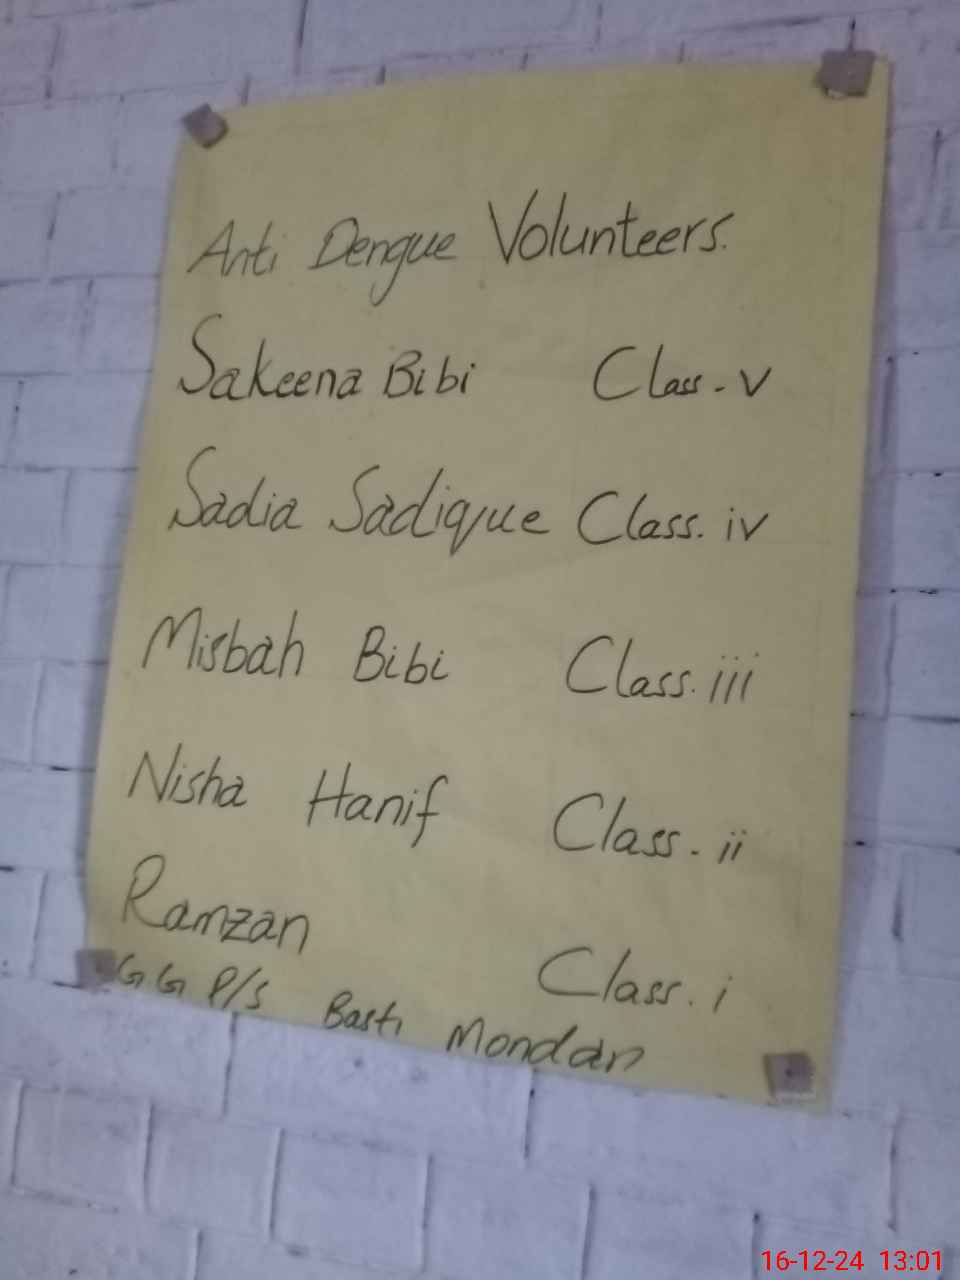 Anti Dengue Volunteers.
Sakeena Bibi Class - V
Sadia Sadique Class. iv
Misbah Bibi Class. iii
Nisha Hanif Class. ii
Ramzan Class. i
G G P/S Basti Mondan
16-12-24 13:01